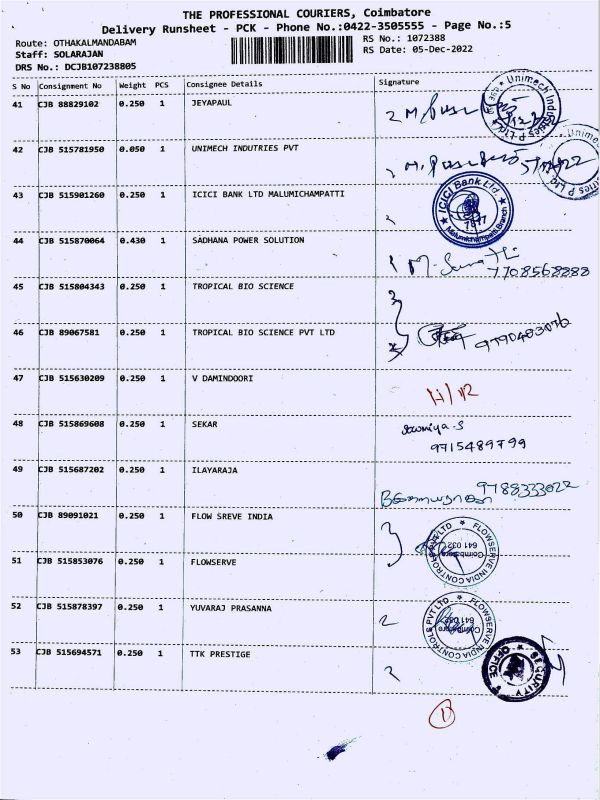 THE PROFESSIONAL COURIERS, Coimbatore
Delivery Runsheet - PCK - Phone No.:0422-3505555 - Page No.:5
Route: OTHAKALMANDABAM
RS No.: 1072388
Staff: SOLARAJAN
RS Date: 05-Dec-2022
DRS No.: DCJB107238805
S No Consignment No Weight PCS Consignee Details Signature
41 CJB 88829102 0.250 1 JEYAPAUL
42 CJB 515781950 0.050 1 UNIMECH INDUTRIES PVT
43 CJB 515901260 0.250 1 ICICI BANK LTD MALUMICHAMPATTI
ICICI Bank Ltd
Malumichampatti Branch
44 CJB 515870064 0.430 1 SADHANA POWER SOLUTION
7708568888
45 CJB 515804343 0.250 1 TROPICAL BIO SCIENCE
46 CJB 89067581 0.250 1 TROPICAL BIO SCIENCE PVT LTD
9790483076
47 CJB 515630209 0.250 1 V DAMINDOORI
48 CJB 515869608 0.250 1 SEKAR
Sowmiya.S
9715489799
49 CJB 515687202 0.250 1 ILAYARAJA
9788333022
50 CJB 89091021 0.250 1 FLOW SREVE INDIA
FLOWSERVE INDIA CONTROLS PVT LTD
Coimbatore
641 032
51 CJB 515853076 0.250 1 FLOWSERVE
52 CJB 515878397 0.250 1 YUVARAJ PRASANNA
FLOWSERVE INDIA CONTROLS PVT LTD
Coimbatore
641 032
53 CJB 515694571 0.250 1 TTK PRESTIGE
SECURITY OFFICE
13